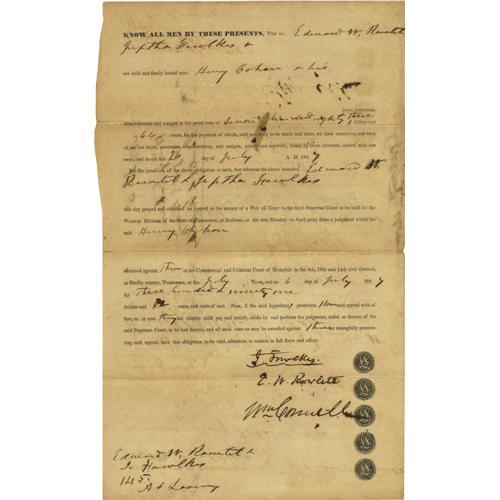 KNOW ALL MEN BY THESE PRESENTS, That we, Edward W. Rowlett
Jeptha Fowlkes &
are held and firmly bound unto Henry Cohen & his
heirs, executors,
administrators and assigns in the penal sum of Seven hundred eighty three
dollars and
64 cents, for the payment of which, well and truly to be made and done, we bind ourselves, and each
of our heirs, executors, administrators, and assigns, jointly and severally, firmly by these presents, sealed with our
seals, and dated this 26 day of July A. D. 1847
But the condition of the above obligation is such, that whereas the above bounded Edward W.
Rowlett & Jeptha Fowlkes
has this day prayed and obtained an Appeal in the nature of a Writ of Error to the next Supreme Court to be held for the
Western Division of the State of Tennessee, at Jackson, on the first Monday in April next, from a judgment which the
said Henry Cohen
obtained against them in the Commercial and Criminal Court of Memphis in the 5th, 13th and 14th civil districts,
in Shelby county, Tennessee, at the July Term, and on 6 day of July 1847
for Three hundred ninety one
dollars and cents, and costs of suit. Now, if the said Appellants prosecute their appeal with ef-
fect, or in case they fail therein shall pay and satisfy, abide by and perform the judgment, order or decree of the
said Supreme Court, to be had therein, and all such costs as may be awarded against them wrongfully prosecu-
ting said appeal, then this obligation to be void, otherwise to remain in full force and effect.
J Fowlkes.
E. W. Rowlett
Wm Connell
Edward W. Rowlett &
J. Fowlkes
145